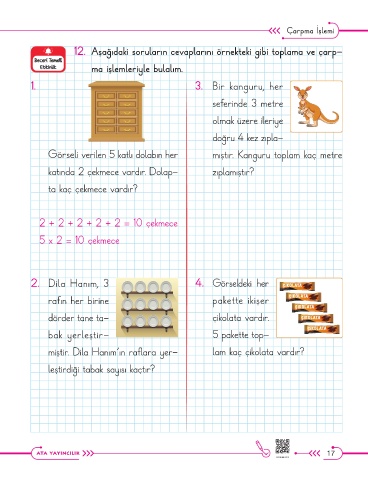 Çarpma İşlemi
Beceri Temelli
Etkinlik
12. Aşağıdaki soruların cevaplarını örnekteki gibi toplama ve çarp-
ma işlemleriyle bulalım.
1.
Görseli verilen 5 katlı dolabın her
katında 2 çekmece vardır. Dolap-
ta kaç çekmece vardır?
2 + 2 + 2 + 2 + 2 = 10 çekmece
5 x 2 = 10 çekmece
2. Dila Hanım, 3
rafın her birine
dörder tane ta-
bak yerleştir-
miştir. Dila Hanım'ın raflara yer-
leştirdiği tabak sayısı kaçtır?
3. Bir kanguru, her
seferinde 3 metre
olmak üzere ileriye
doğru 4 kez zıpla-
mıştır. Kanguru toplam kaç metre
zıplamıştır?
4. Görseldeki her
pakette ikişer
çikolata vardır.
5 pakette top-
lam kaç çikolata vardır?
ÇİKOLATA
ÇİKOLATA
ÇİKOLATA
ÇİKOLATA
ÇİKOLATA
ATA YAYINCILIK
17